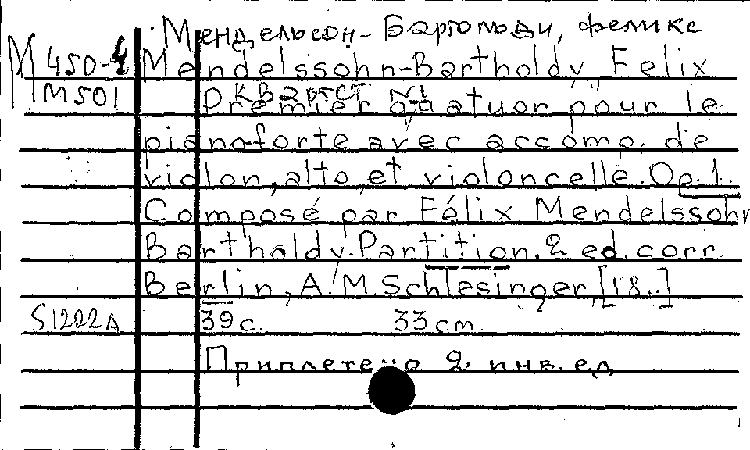 Мендельсон-Бартольди, Феликс
М 450-4 Mendelssohn-Bartholdy Felix
М501 Квартет №1
Premier quatuor pour le
pianoforte avec accomp. de
violon, alto et violoncelle. Op.1.
Composé par Félix Mendelssohn
Bartholdy. Partition. 2 ed. corr.
Berlin, A. M. Schlesinger, [18..]
S1222A 39 с. 33 cm.
Приплетено 2 инв. ед.